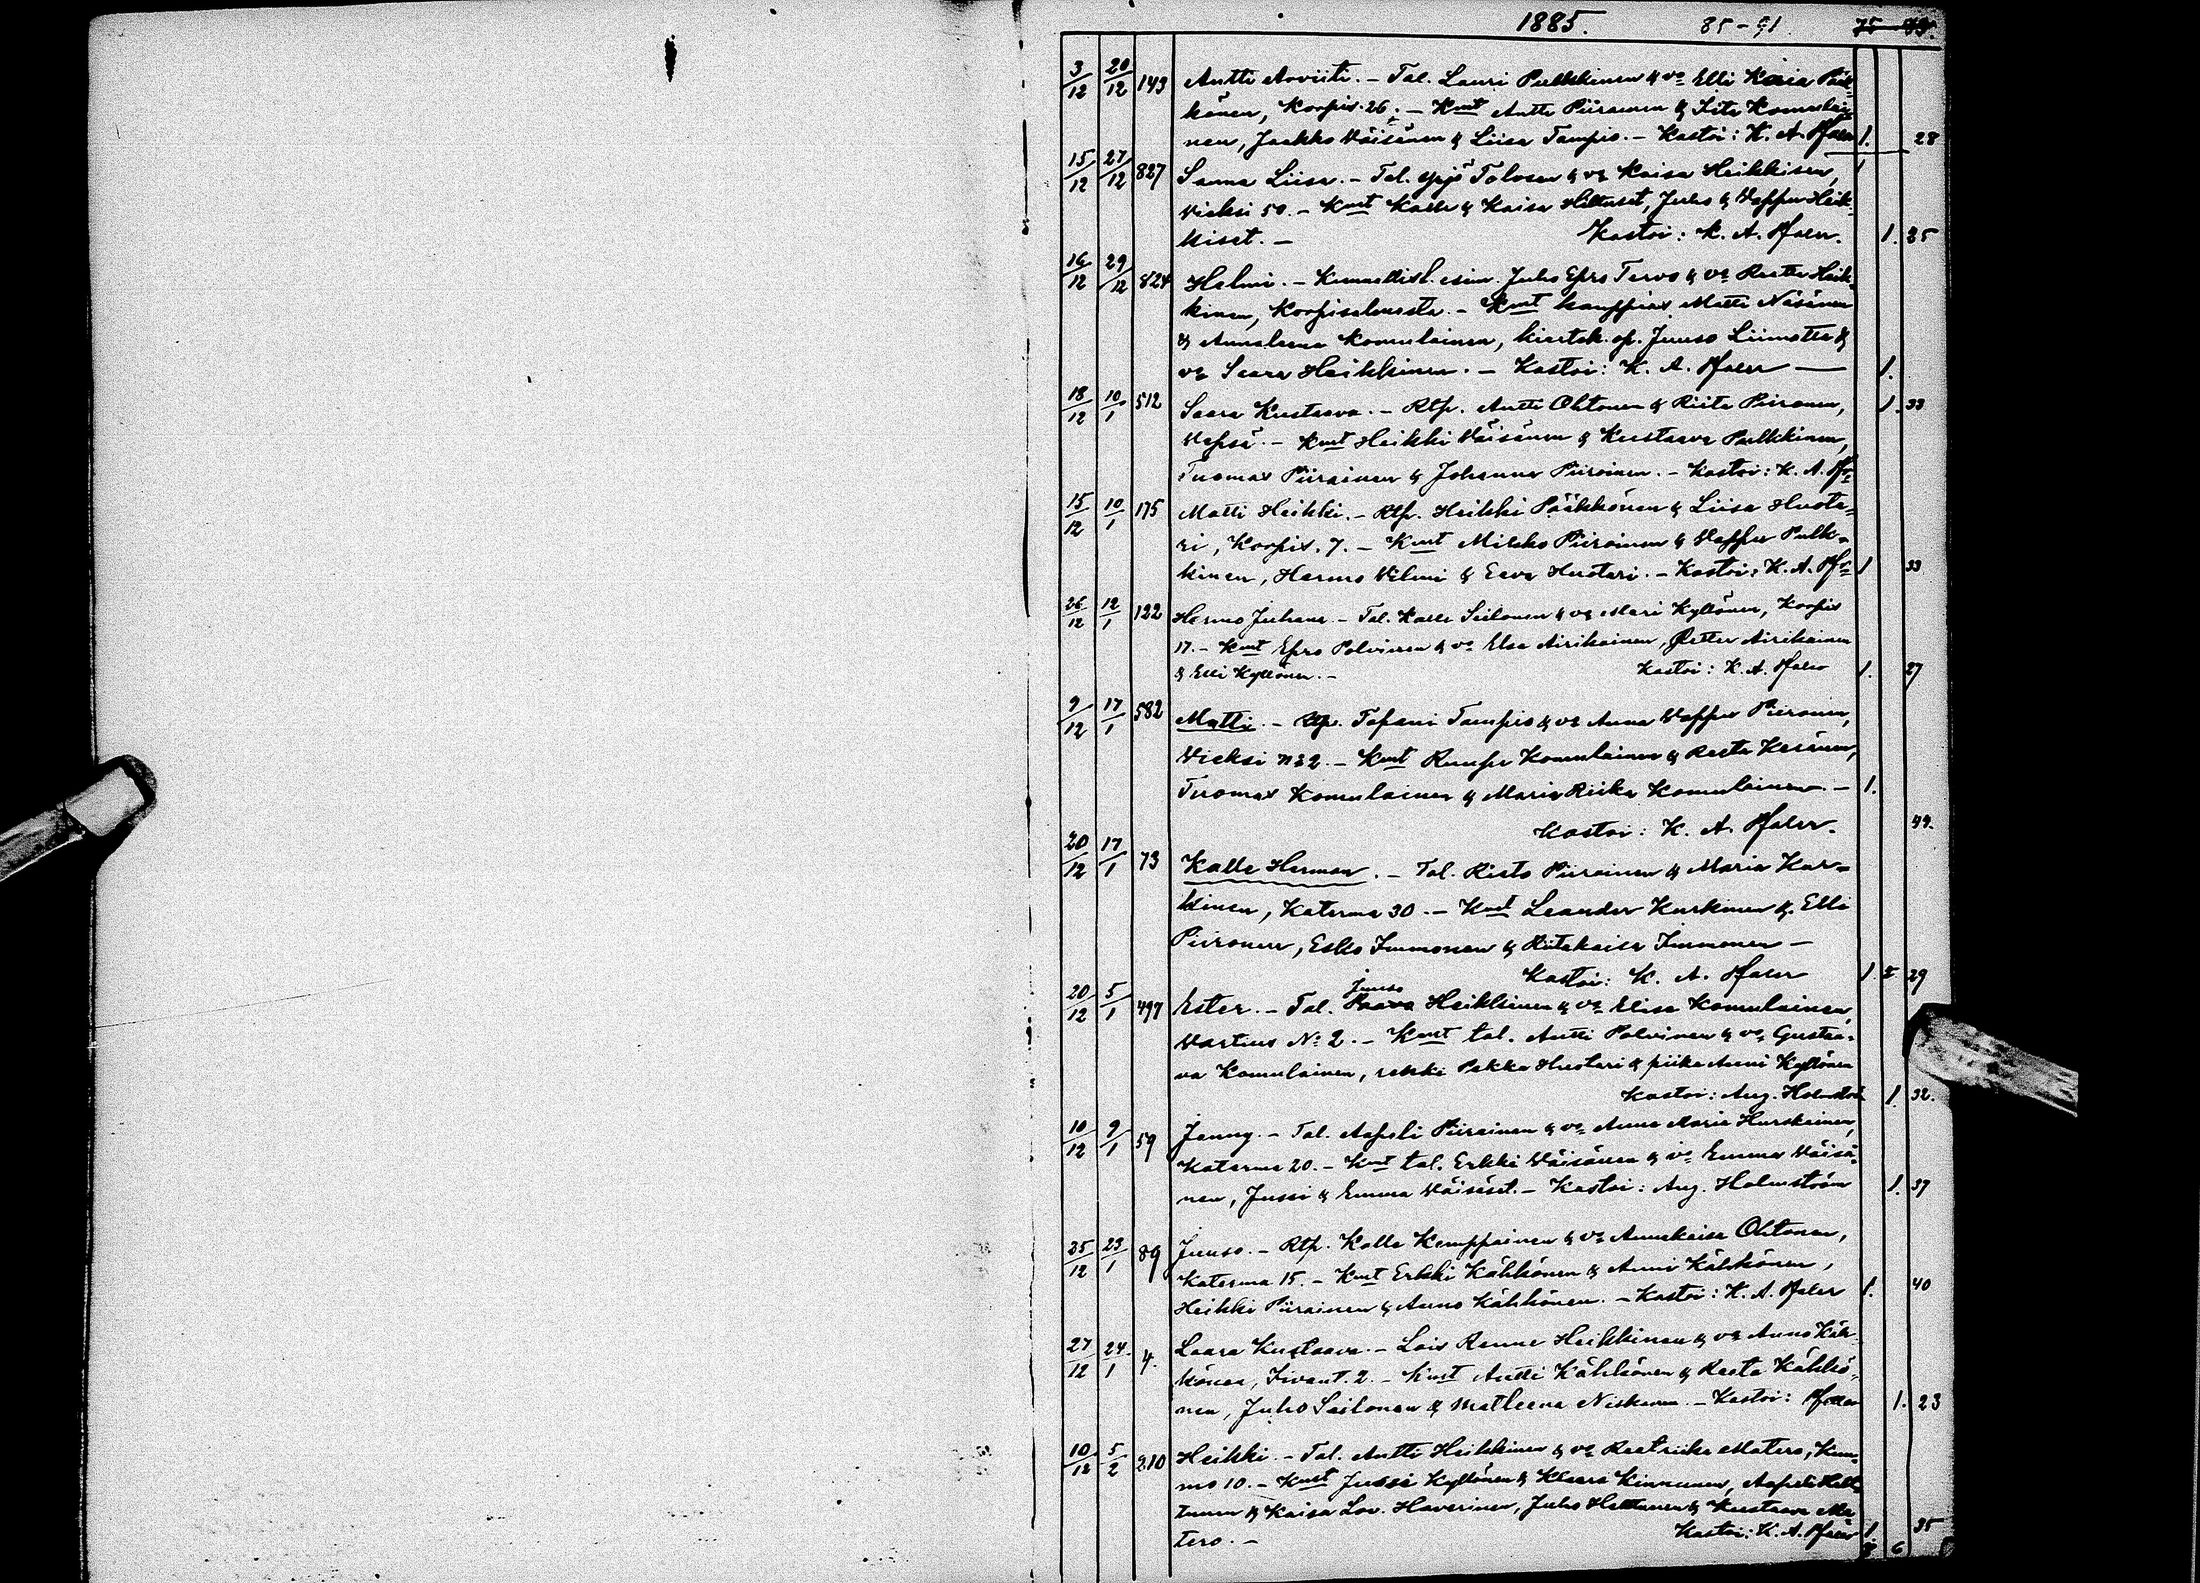 1885. 85-91. 75
3/12 20/12 143 Antti Arviiti. - Tal. Lauri Pulkkinen & vo Elli Kaisa Pääk-
könen, Korpis. 26. - Kmt Antti Piirainen & Iita Komulai-
nen, Jaakko Väisänen & Liisa Tampio. - Kastoi: K. A. Pfaler 1. 28
15/12 27/12 827 Sanna Liisa. - Tal. Yrjö Tolonen & vo Kaisa Heikkinen,
Vieksi 50. - Kmt Kalle & Kaisa Hiltuset, Juho & Vappu Heik-
kiset. - Kastoi: K. A. Pfaler. 1. 25
16/12 29/12 824 Helmi. - Kunnallisl. esim. Juho Epro Tervo & vo Reetta Heik-
kinen, Korpisalmesta. - Kmt kauppias Matti Näsänen
& Annaleena Komulainen, kiertok. op. Juuso Liimatta &
vo Saara Heikkinen. - Kastoi: K. A. Pfaler - 1.
18/12 10/1 512 Saara Kustaava. - Rtp. Antti Ohtonen & Riita Piironen, 1. 33
Vepsä. - Kmt Heikki Väisänen & Kustaava Pulkkinen,
Tuomas Piirainen & Johanna Piirainen. - Kastoi: K. A. Pfa-
15/12 10/1 175 Matti Heikki. - Rtp. Heikki Pääkkönen & Liisa Huota-
ri, Korpis. 7. - Kmt Mikko Piirainen & Vappu Pulk-
kinen, Hermo Vilmi & Eeva Huotari. - Kastoi: K. A. Pfa- 1 33
26/12 12/1 122 Hermo Juhana - Tal. Kalle Seilonen & vo Mari Kyllönen, Korpis
17. - Kmt Epro Polvinen & vo Elsa Airikainen, Petter Airikainen
& Elli Kyllönen. - Kastoi: K. A. Pfaler 1. 27
9/12 17/1 582 Matti. - Rtp. Tapani Tampio & vo Anna Vappu Piironen,
Vieksi No 2. - Kmt Romppu Komulainen & Reeta Kesänen,
Tuomas Komulainen & Maria Riika Komulainen. - 1.
Kastoi: K. A. Pfaler. 44.
20/12 17/1 73 Kalle Herman. - Tal. Risto Piirainen & Maria Kur-
kinen, Katerma 30. - Kmt Leander Kurkinen & Elli
Piironen, Esko Immonen & Riitakaisa Immonen -
Kastoi: K. A. Pfaler 1 I 29
Juuso
20/12 5/1 497 Ester. - Tal. Paavo Heikkinen & vo Elisa Komulainen,
Vartius No 2. - Kmt tal. Antti Polvinen & vo Gustaa-
va Komulainen, renki Pekka Huotari & piika Anni Kyllönen
Kastoi: Aug. Holmström 1. 32.
10/12 9/1 59 Janny. - Tal. Aapeli Piirainen & vo Anna Maria Hurskainen,
Katerma 20. - Kmt tal. Erkki Väisänen & vo Emma Väisä-
nen, Jussi & Emma Väisäset. - Kastoi: Aug. Holmström 1. 37
25/12 23/1 89 Juuso. - Rtp. Kalle Kemppainen & vo Annakaisa Ohtonen,
Katerma 15. - Kmt Erkki Kähkönen & Anni Kähkönen,
Heikki Piirainen & Anna Kähkönen. - Kastoi: K. A. Pfaler 1. 40
27/12 24/1 4. Saara Kustaava. - Lois Renne Heikkinen & vo Anna Käh-
könen, Iivant. 2. - Kmt Antti Kähkönen & Reeta Kähkö-
nen, Juho Seilonen & Matleena Niskanen. - Kastoi: Pfaler 1. 23
10/12 5/2 210 Heikki. - Tal. Antti Heikkinen & vo Reetriika Matero, Kuu-
mo 10. - Kmt Jussi Kyllönen & Klaara Kinnunen, Aapeli Hilt-
tunen & Kaisa Lov. Haverinen, Juho Hiltunen & Kustaava Ma-
tero. - Kastoi: K. A. Pfaler 1. 35
6